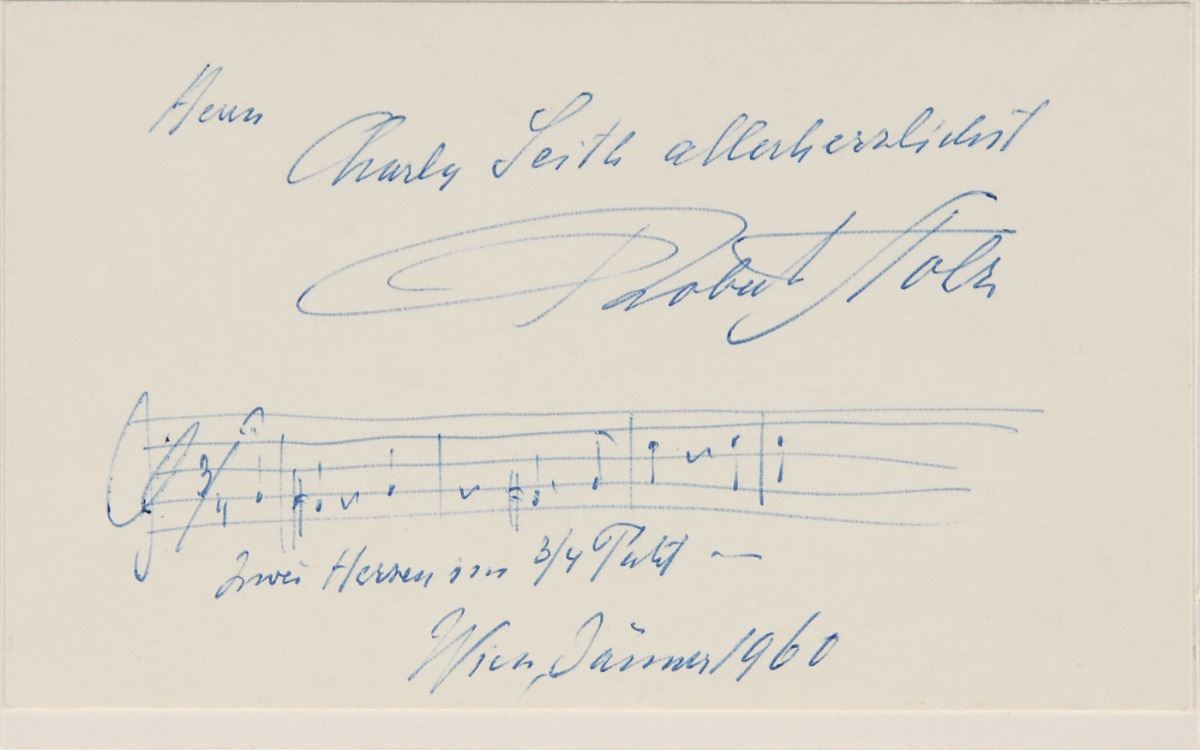 Herrn
Charly Seith allerherzlichst
Robert Stolz
3/4
Zwei Herzen im 3/4 Takt —
Wien, Jänner 1960